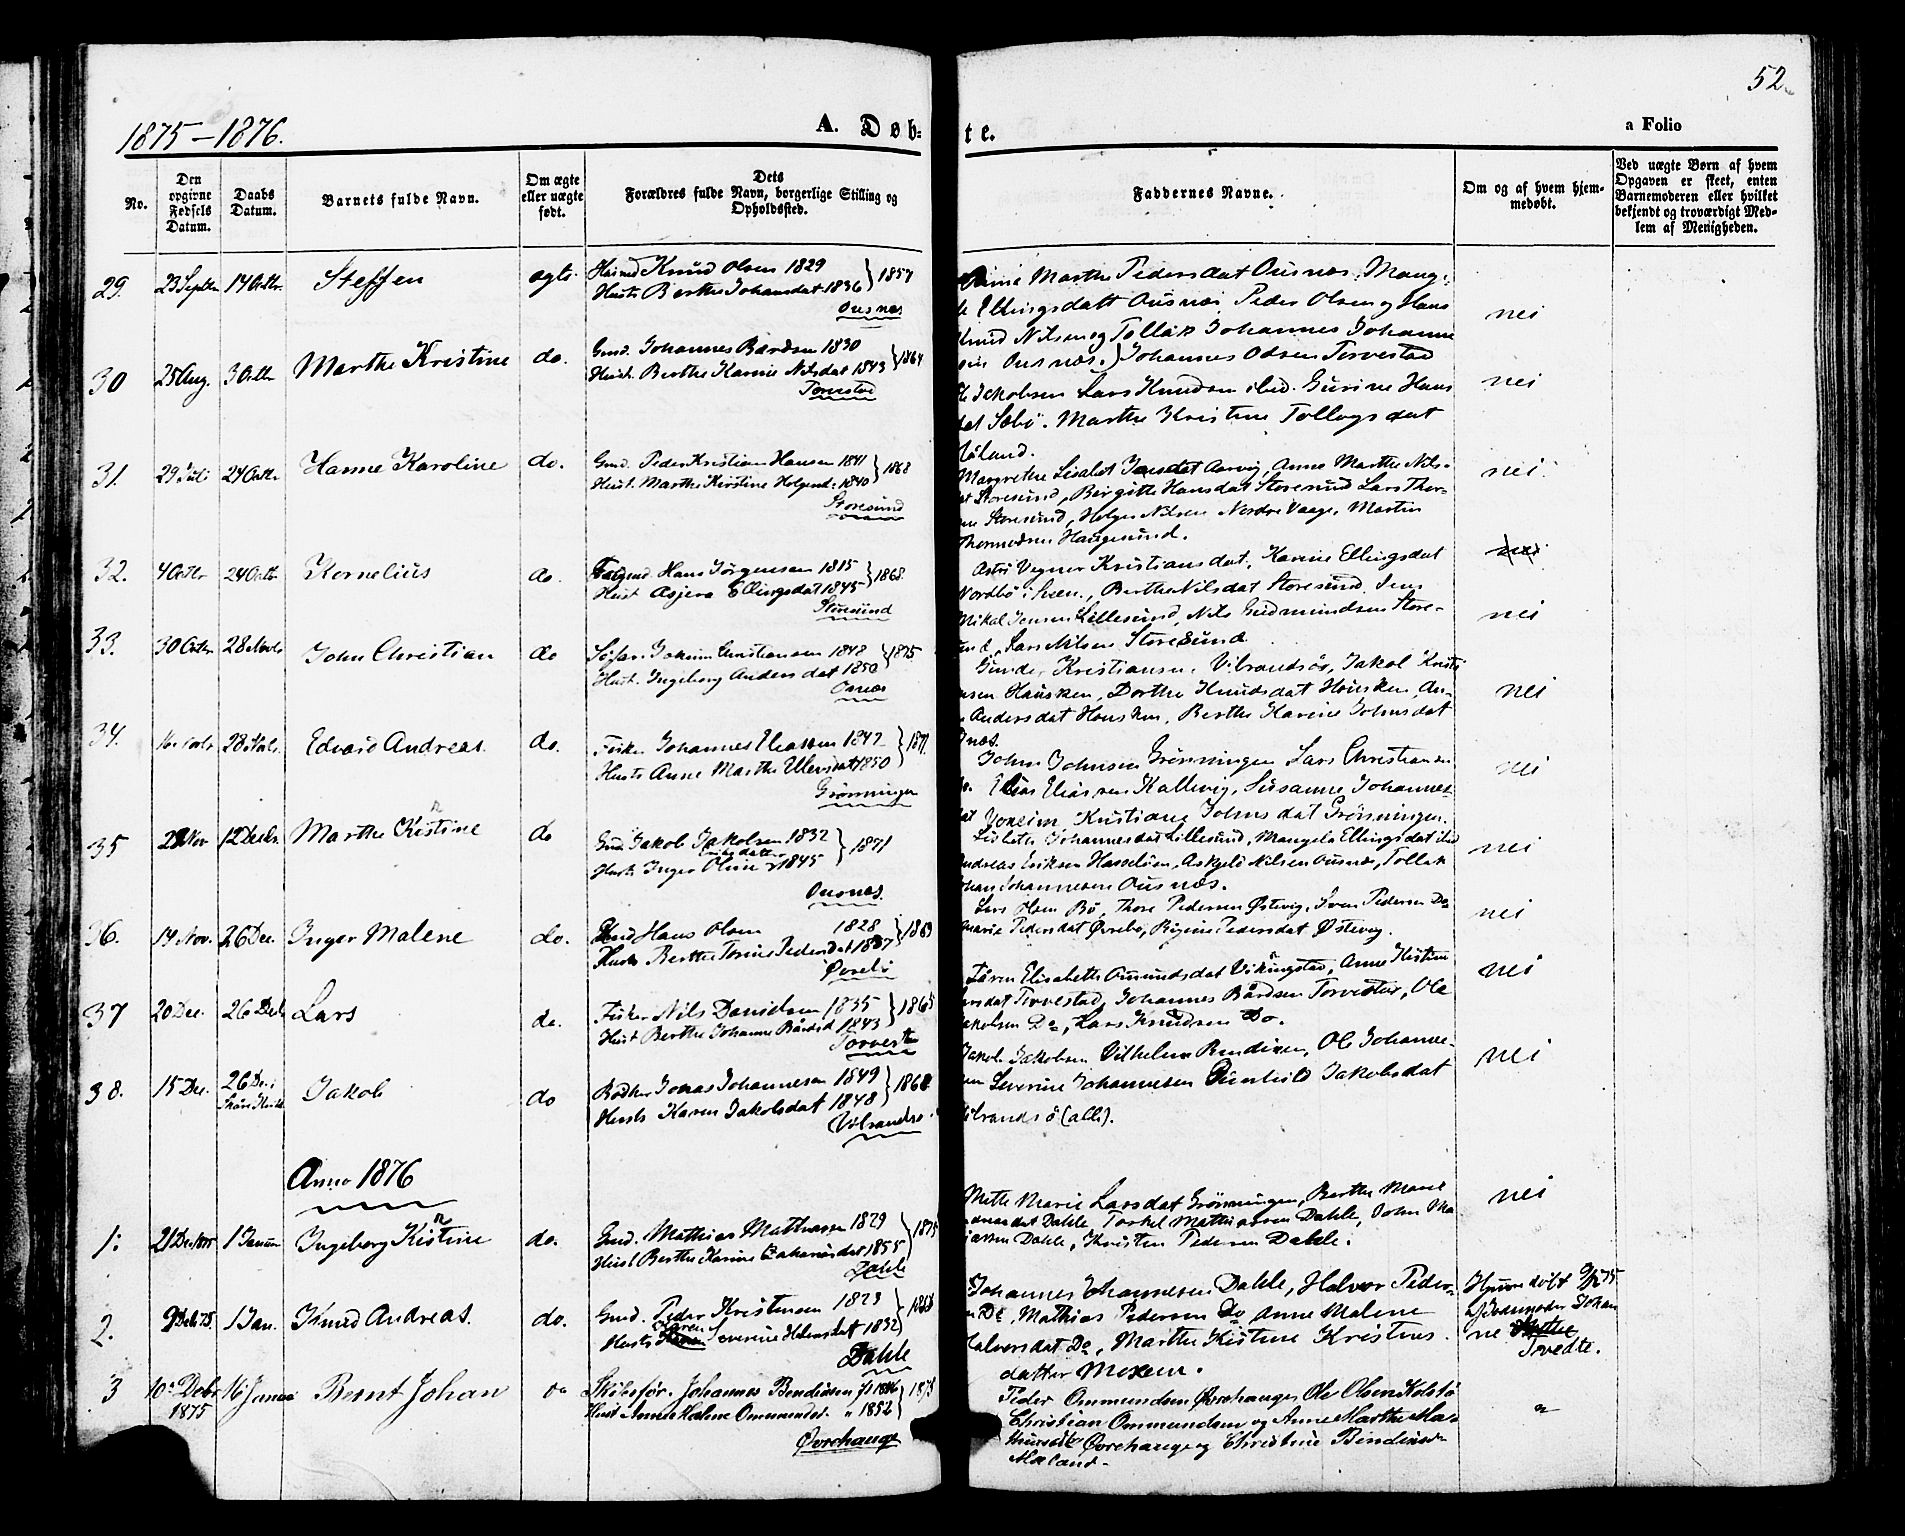 52.
1875-1876.
A. Døb-
te.
a Folio
No.
Den opgivne Fødsels Datum.
Daabs Datum.
Barnets fulde Navn.
Om ægte eller uægte født.
Dets Forældres fulde Navn, borgerlige Stilling og Opholdssted.
Faddernes Navne.
Om og af hvem hjemmedøbt.
Ved uægte Børn af hvem Opgaven er skeet, enten Barnemoderen eller hvilket bekjendt og troværdigt Medlem af Menigheden.
29. 23 Septbr 14 Octbr. Steffen ægte Knud Olsen 1829
Hustr Berthe Johansdat. 1836 } 1857
Ousnæs
Marthe Pedersdat Ousnæs, Mang-
Ellingsdatt Ousnæs, Peder Olsen og Hans
Knud Nilsen og Tollak Johannes Johanne
Ousnæs.
nei
30 25 Aug. 3 Octbr Marthe Kristine do. Gmd. Johannes Bårdsen 1830
Hust. Berthe Karine Nilsdat 1843 } 1864
Torvestad
Johannes Odsen Torvestad
Jakobsen Lars Knudsen ibid. Gurine Hans
dat Sæbö. Marthe Kristine Tollagsdat
nei
31. 29 Juli 24 Octbr. Hanne Karoline do. Gmd. Peder Kristian Hansen 1841
Hust. Marthe Kirstine Holgersd. 1840 } 1868
Storesund
Margrethe Lisabet Jansdat Aarvig, Anne Marthe Nils-
dat Storesund, Birgitte Hansdat Storesund Lars Thor-
Storesund, Holger Nilsen Nordre Vaage, Martin
Thormodsen Haugesund.
nei
32. 4 Octbr 24 Octbr. Kornelius do. Hans Jörgensen 1815
Hust Asjera Ellingsdat 1845 } 1868.
Storesund
Astri Vegner Kristiansdat, Karine Ellingsdat
Nordbö i Sveen, Berthe Nilsdat Storesund. Jens
Mikal Jensen Lillesund, Nils Gudmundsen Store-
sund, Lars Nilsen Storesund
nei
33. 30 Octbr. 28 Novbr John Christian do Sjöfar. Joakim Christiansen 1848
Hust. Ingeborg Andersdat 1850 } 1875
Ousnæs
Gunder Kristiansen Vibrandsö, Jakob Kristi
ansen Hausken, Dorthe Knudsdat Housken, An-
Andersdat Housken, Berthe Karine Johnsdat
nei
34. 28 Novbr. Edvard Andreas. do. Fisker Johannes Eliassen 1847
Hust. Anne Marthe Ulevsdat 1850 } 1871.
Grönningen
John Johnsen Grönningen Lars Christiansen
do. Elias Eliassen Kallevig, Susanne Johannes-
dat Yoreim Kristiane Johnsdat Grönningen.
nei
35 28 Nov 12 Decbr. Marthe Kistine do Gmd. Jakob Jakobsen 1832
Hust. Inger Oline Eriksdatter 1845 } 1871
Ousnæs.
Lisbeth Johannesdat Lillesund, Mangela Ellingsdat ibid
Andreas Eriksen Hasselöen, Askjeld Nilsen Ousnæs, Tollak
Johan Johannesen Ousnæs.
nei
36. 14 Nov. 26 Dec. Inger Malene do. Gmd Hans Olsen 1828
Hust. Berthe Torine Pedersdat 1837 } 1863
Øvrebö
Lars Olsen Bö, Thore Pedersen Østevig, Iver Pedersen Do
Marie Pedersdat Øvrebö, Rigine Pedersdat Østevig.
nei
37 20 Dec. 26 Decbr Lars do. Fisker Nils Danielsen 1835
Hust Berthe Johanne Bårdsd 1843 } 1865
Torvestad
Elisabeth Amundsdat Vikingstad, Anne Kistine
Larsdat Torvestad, Johannes Bårdsen Torvestad, Ole
Jakobsen Do, Lars Knudsen Do.
nei
38. 15 Dec. 26 Dec. i Jakob do Bödker Jonas Johannesen 1849
Hustr. Karen Jakobsdat 1848 } 1868
Vibrandsö
Jakob Jakobsen Vilhelm Bendixen, Ole Johanne-
sen Severine Johannesen Gunhild Jakobsdat
Vibrandsö (alle).
nei
Anno 1876
1. 21 Decbr 1 Januar Ingeborg Kistine do. Gmd. Mathias Mathiassen 1829
Hust Berthe Karine Zakariasdat 1855 } 1875
Dahle
Mette Marie Larsdat Grönningen, Berthe Marie
Dahle, Torkel Mathiassen Dahle, John Ma
thiassen Dahle, Kristen Pedersen Dahle.
nei
2. 9 Deb 75. 1 Jan. Knud Andreas. do. Gmd. Peder Kristensen 1823
Hust. Karen Severine Halvorsdat 1832 } 1868
Dahle
Johannes Johannesen Dahle, Halvor Peder-
sen Do, Mathias Pedersen Do Anne Malene
Halvorsdat Do, Marthe Kistine Kristens-
datter Moxem.
Hjemmedöbt 75
af Jordemoder Johan
ne
Tvedte.
3 10 Debr 1875 16 Januar Bernt Johan do Skibsför. Johannes Bendixsen 1846
Hust Anne Malene Ommundsd. 1852 } 1873
Øvrehauge
Peder Ommundsen Øvrehauge, Ole Olsen Kolstö
Christian Ommundsen og Anne Marthe Ma-
Øvrehauge og Christine Bendixsdr
Maland.